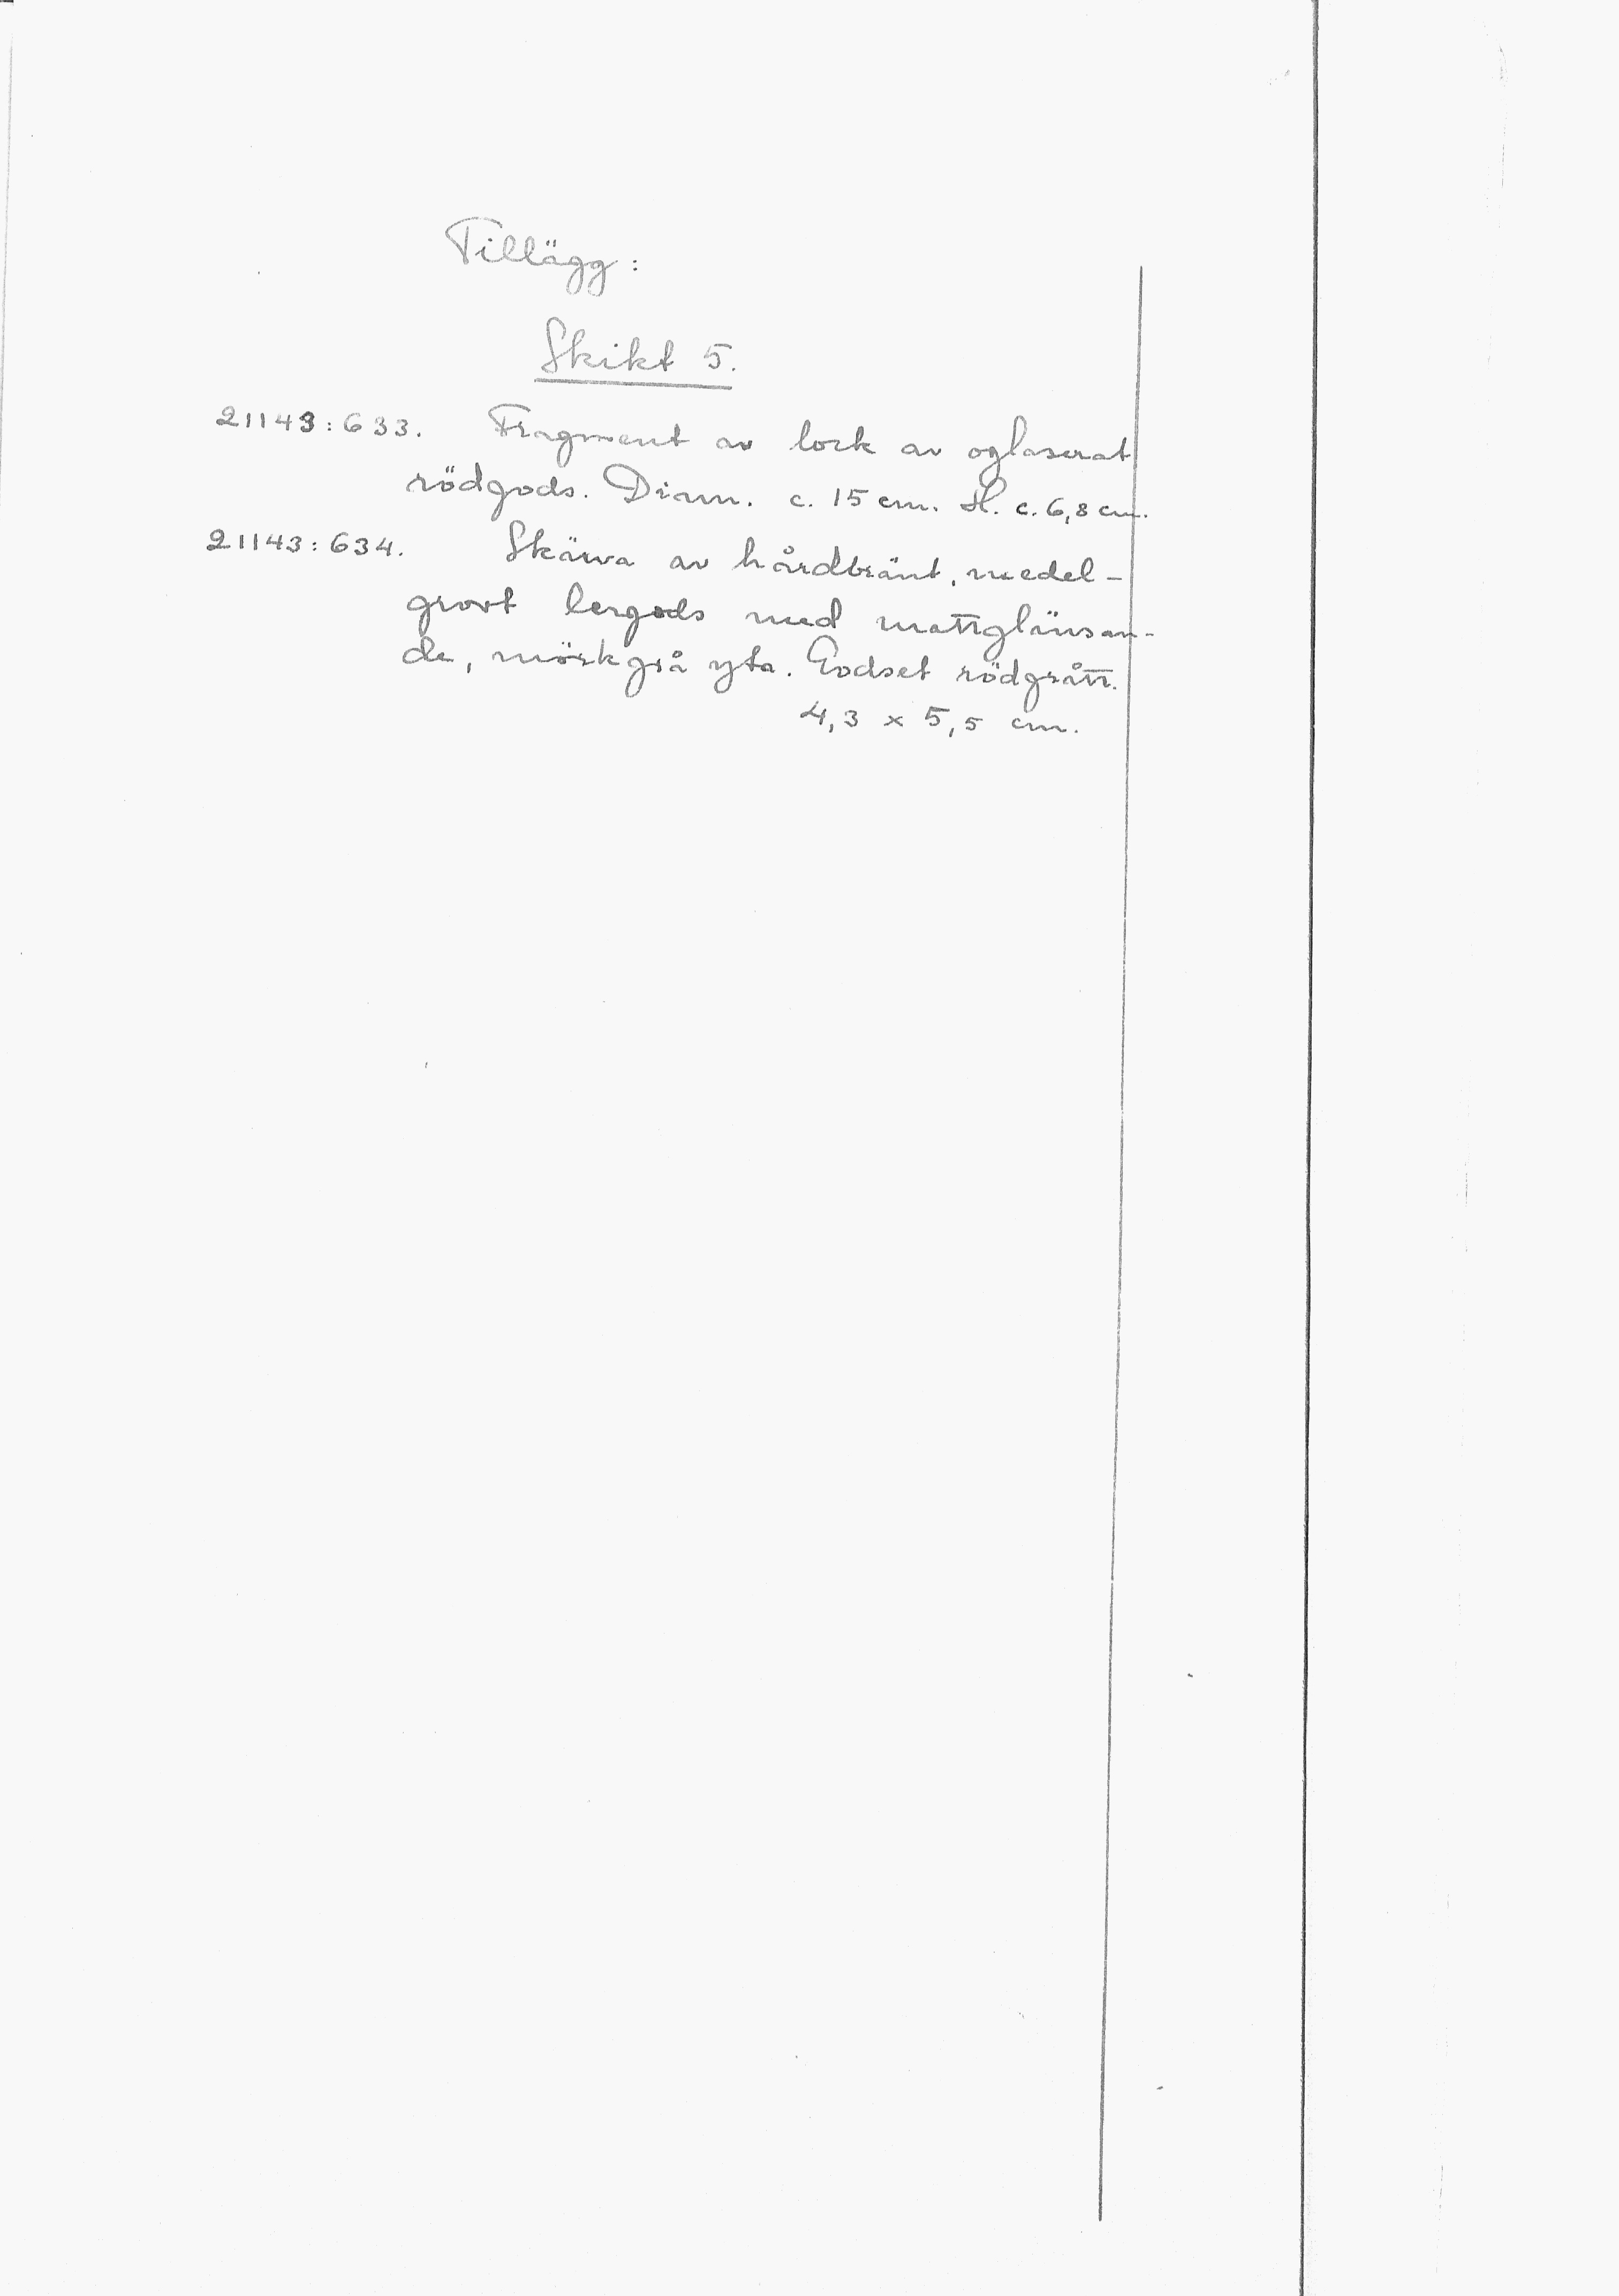 Tillägg:
Skikt 5.
21143:633. Fragment av lock av oglaserat
rödgods. Diam. c. 15 cm. H. c. 6,8 cm.
21143:634. Skärva av hårdbränt, medel-
grovt lergods med mattglänsan-
de, mörkgrå yta. Godset rödgrått.
4,3 x 5,5 cm.